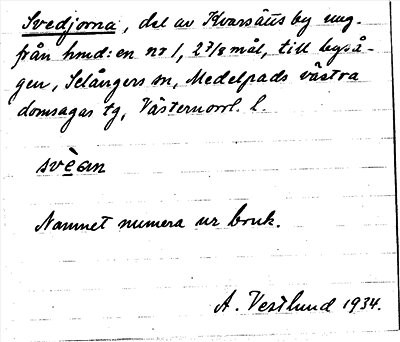 Svedjorna, del av Kvarsätts by ung.
från hmd:en nr 1, 2 7/8 mål, till byså-
gen, Selångers sn, Medelpads västra
domsagas tg, Västernorrl. l.
svèan
Namnet numera ur bruk.
A. Vestlund 1934.